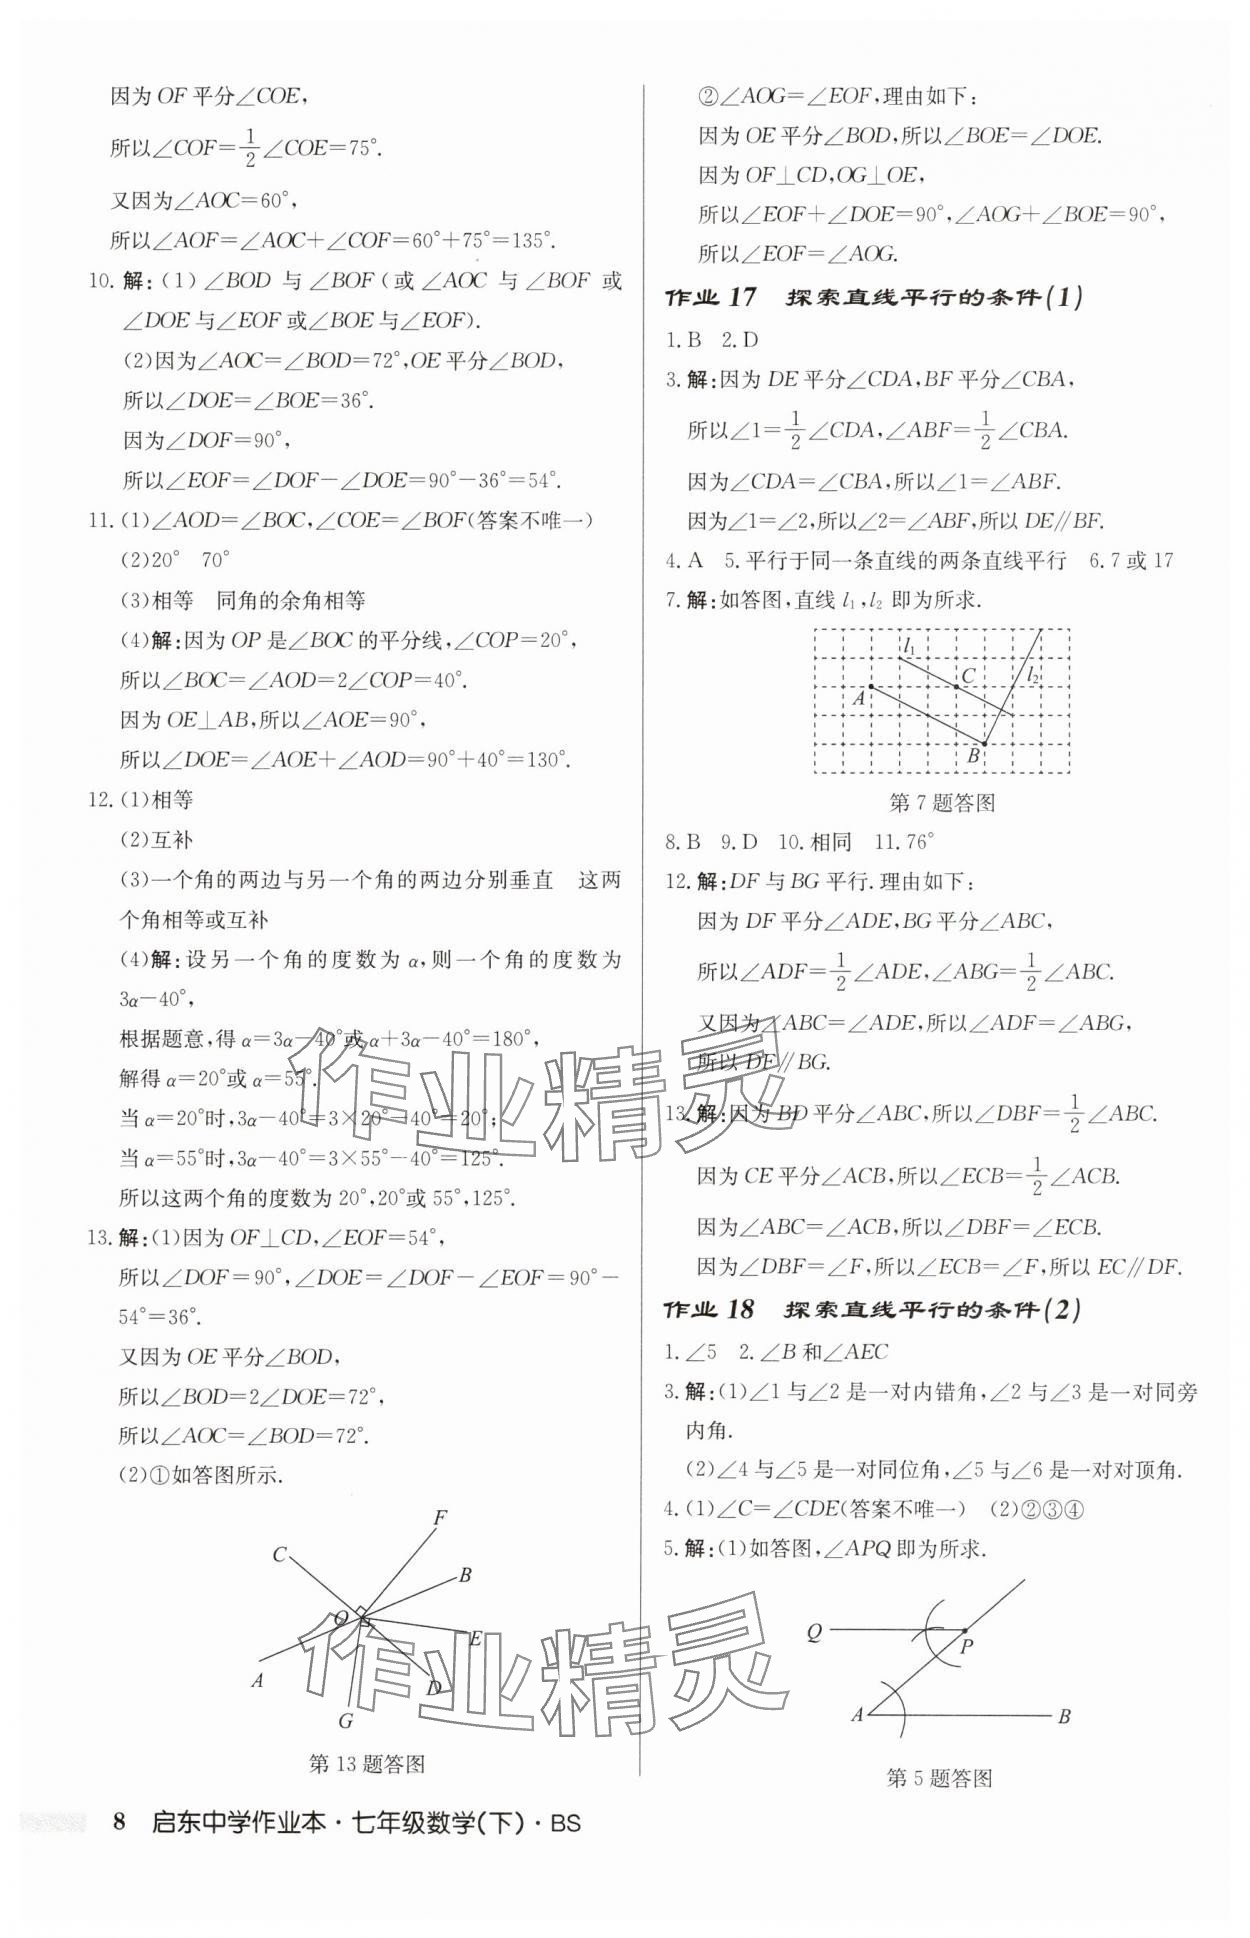 因为OF平分∠COE,
所以∠COF=1/2∠COE=75°.
又因为∠AOC=60°,
所以∠AOF=∠AOC+∠COF=60°+75°=135°.
10.解:(1)∠BOD与∠BOF(或∠AOC与∠BOF或
∠DOE与∠EOF或∠BOE与∠EOF).
(2)因为∠AOC=∠BOD=72°,OE平分∠BOD,
所以∠DOE=∠BOE=36°.
因为∠DOF=90°,
所以∠EOF=∠DOF-∠DOE=90°-36°=54°.
11.(1)∠AOD=∠BOC,∠COE=∠BOF(答案不唯一)
(2)20° 70°
(3)相等 同角的余角相等
(4)解:因为OP是∠BOC的平分线,∠COP=20°,
所以∠BOC=∠AOD=2∠COP=40°.
因为OE⊥AB,所以∠AOE=90°,
所以∠DOE=∠AOE+∠AOD=90°+40°=130°.
12.(1)相等
(2)互补
(3)一个角的两边与另一个角的两边分别垂直 这两
个角相等或互补
(4)解:设另一个角的度数为α,则一个角的度数为
3α-40°,
根据题意,得α=3α-40°或α+3α-40°=180°,
解得α=20°或α=55°.
当α=20°时,3α-40°=3×20°-40°=20°;
当α=55°时,3α-40°=3×55°-40°=125°.
所以这两个角的度数为20°,20°或55°,125°.
13.解:(1)因为OF⊥CD,∠EOF=54°,
所以∠DOF=90°,∠DOE=∠DOF-∠EOF=90°-
54°=36°.
又因为OE平分∠BOD,
所以∠BOD=2∠DOE=72°,
所以∠AOC=∠BOD=72°.
(2)①如答图所示.
F
C
B
O
E
A
D
G
第13题答图
②∠AOG=∠EOF,理由如下:
因为OE平分∠BOD,所以∠BOE=∠DOE.
因为OF⊥CD,OG⊥OE,
所以∠EOF+∠DOE=90°,∠AOG+∠BOE=90°,
所以∠EOF=∠AOG.
作业17 探索直线平行的条件(1)
1.B 2.D
3.解:因为DE平分∠CDA,BF平分∠CBA,
所以∠1=1/2∠CDA,∠ABF=1/2∠CBA.
因为∠CDA=∠CBA,所以∠1=∠ABF.
因为∠1=∠2,所以∠2=∠ABF,所以DE∥BF.
4.A 5.平行于同一条直线的两条直线平行 6.7或17
7.解:如答图,直线l₁,l₂即为所求.
l₁
C
l₂
A
B
第7题答图
8.B 9.D 10.相同 11.76°
12.解:DF与BG平行.理由如下:
因为DF平分∠ADE,BG平分∠ABC,
所以∠ADF=1/2∠ADE,∠ABG=1/2∠ABC.
又因为∠ABC=∠ADE,所以∠ADF=∠ABG,
所以DF∥BG.
13.解:因为BD平分∠ABC,所以∠DBF=1/2∠ABC.
因为CE平分∠ACB,所以∠ECB=1/2∠ACB.
因为∠ABC=∠ACB,所以∠DBF=∠ECB.
因为∠DBF=∠F,所以∠ECB=∠F,所以EC∥DF.
作业18 探索直线平行的条件(2)
1.∠5 2.∠B和∠AEC
3.解:(1)∠1与∠2是一对内错角,∠2与∠3是一对同旁
内角.
(2)∠4与∠5是一对同位角,∠5与∠6是一对对顶角.
4.(1)∠C=∠CDE(答案不唯一) (2)②③④
5.解:(1)如答图,∠APQ即为所求.
Q
P
A
B
第5题答图
作业精灵
作业精灵
8 启东中学作业本·七年级数学(下)·BS